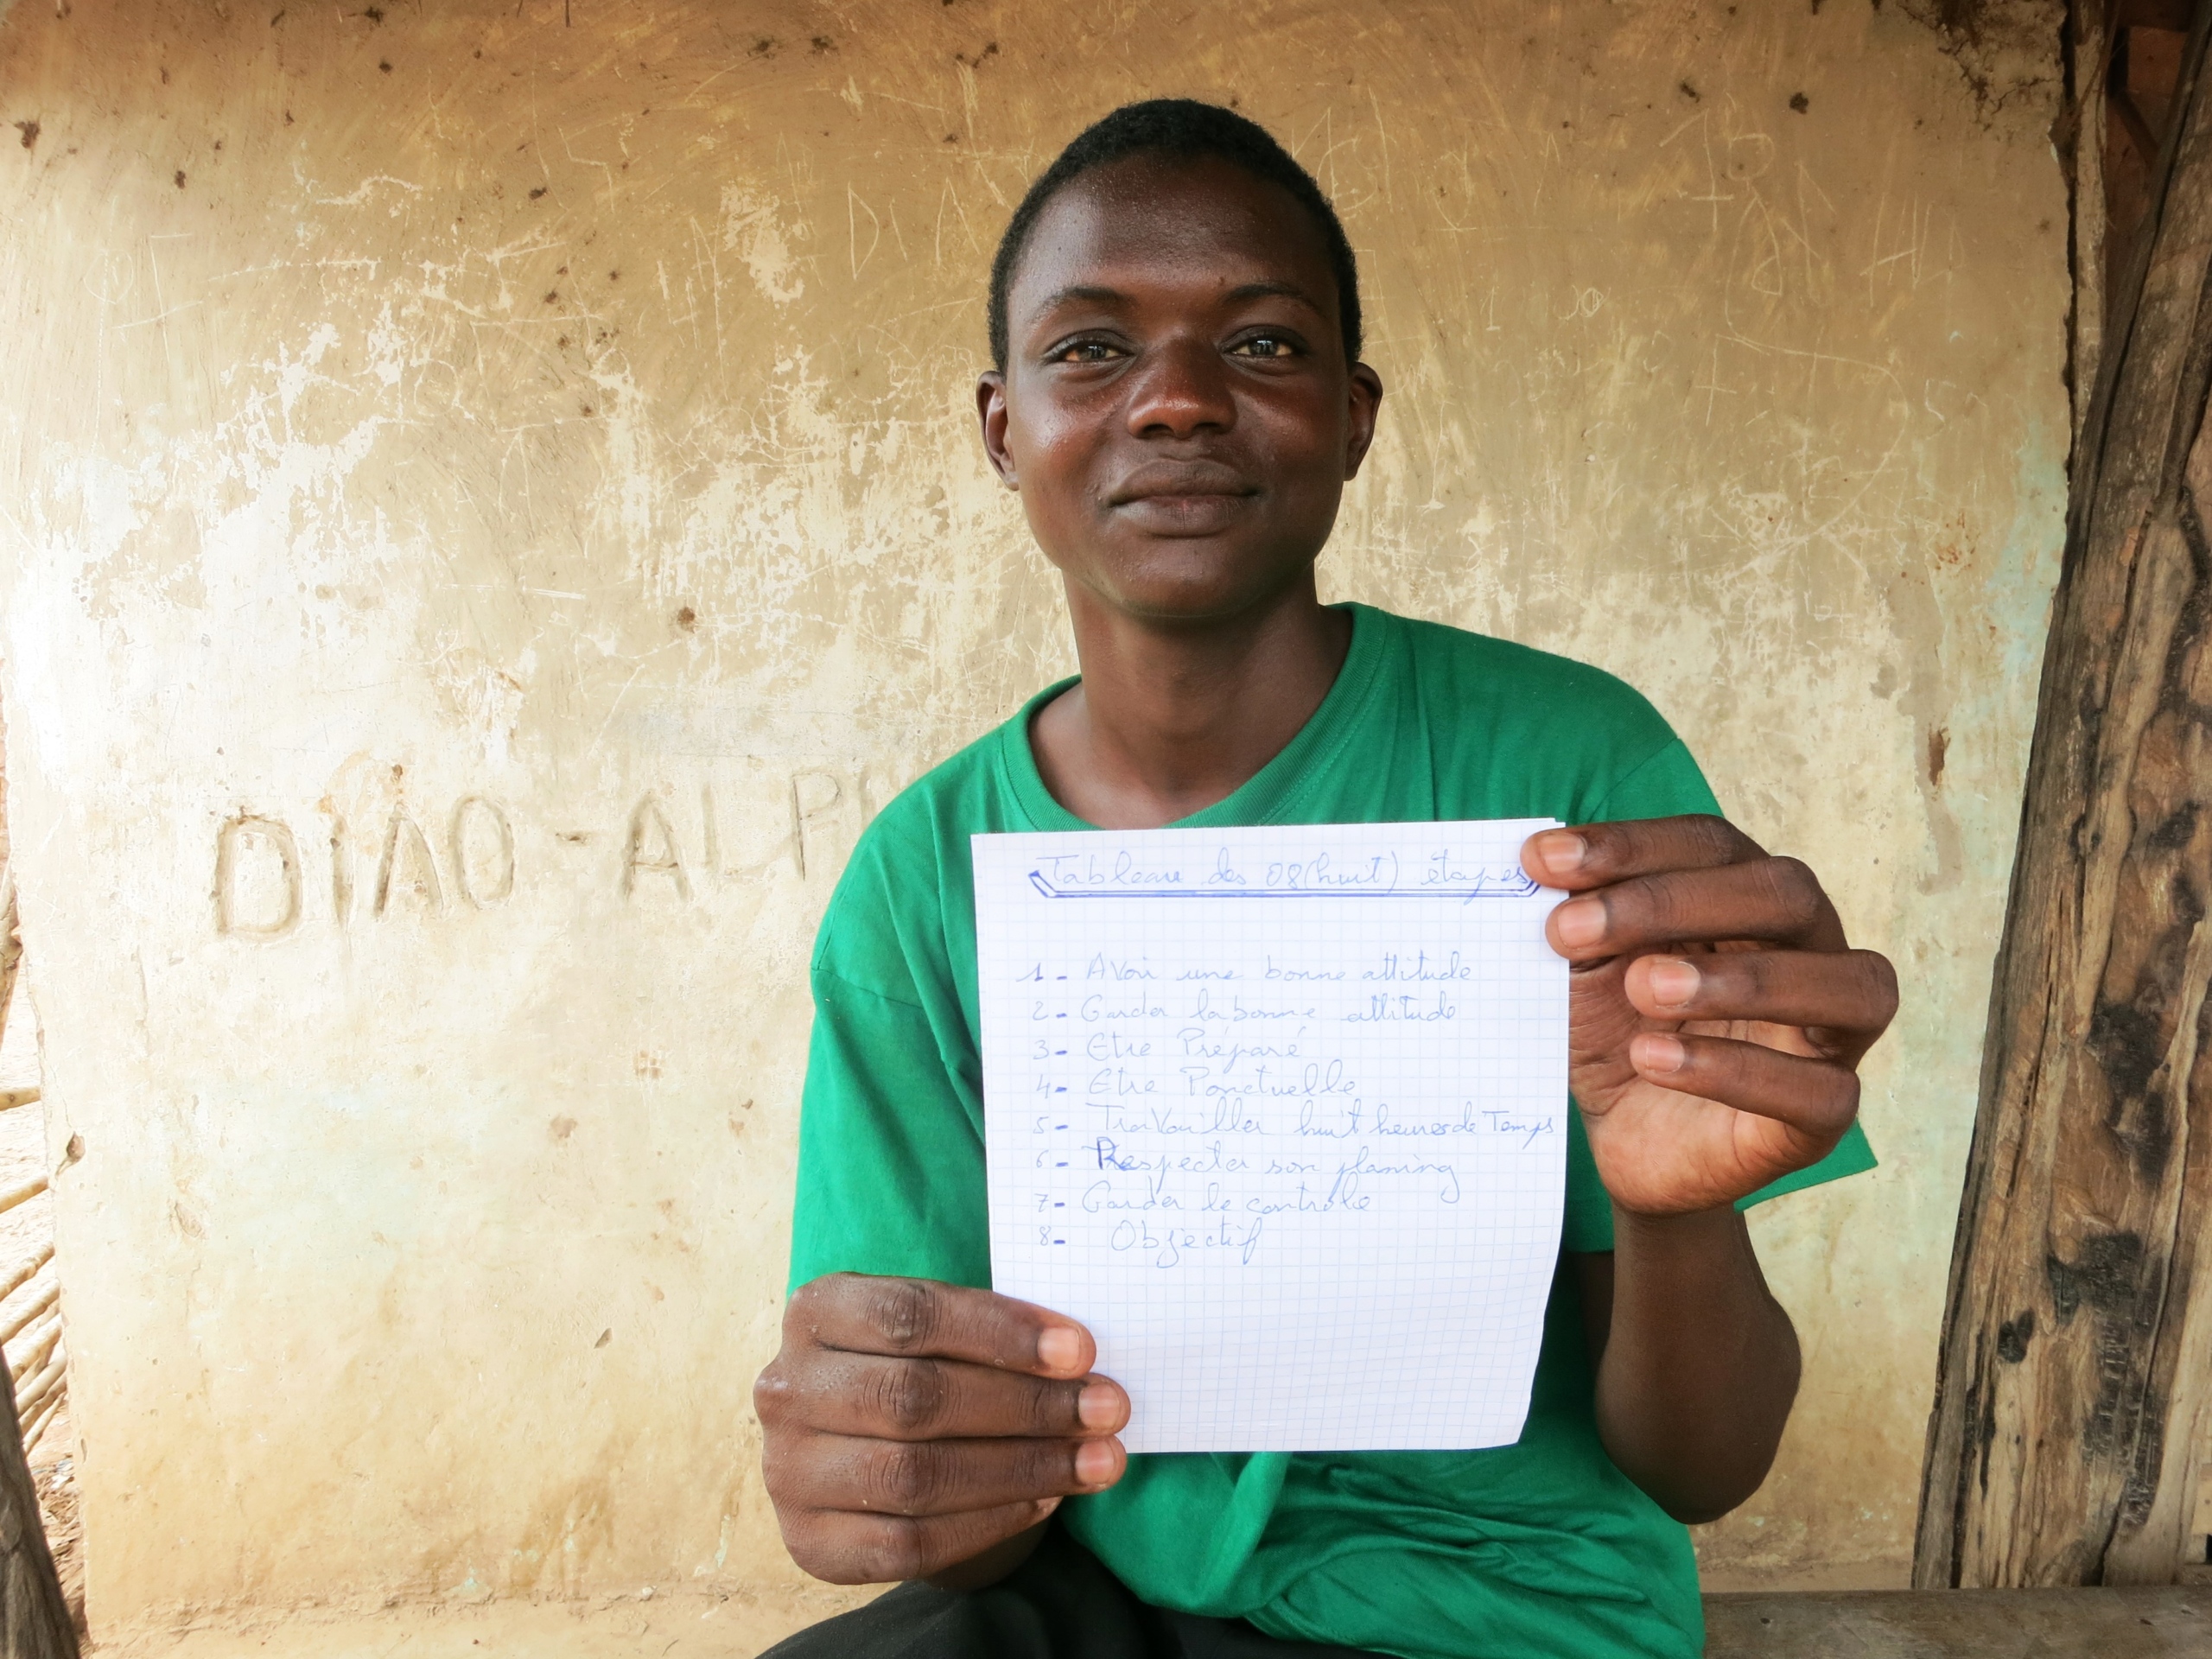 DIAO - ALP
Tableau des 08 (huit) étapes
1 - Avoir une bonne attitude
2 - Garder la bonne attitude
3 - Etre Préparé
4 - Etre Ponctuelle
5 - Travailler huit heures de Temps
6 - Respecter son planing
7 - Garder le controle
8 - Objectif